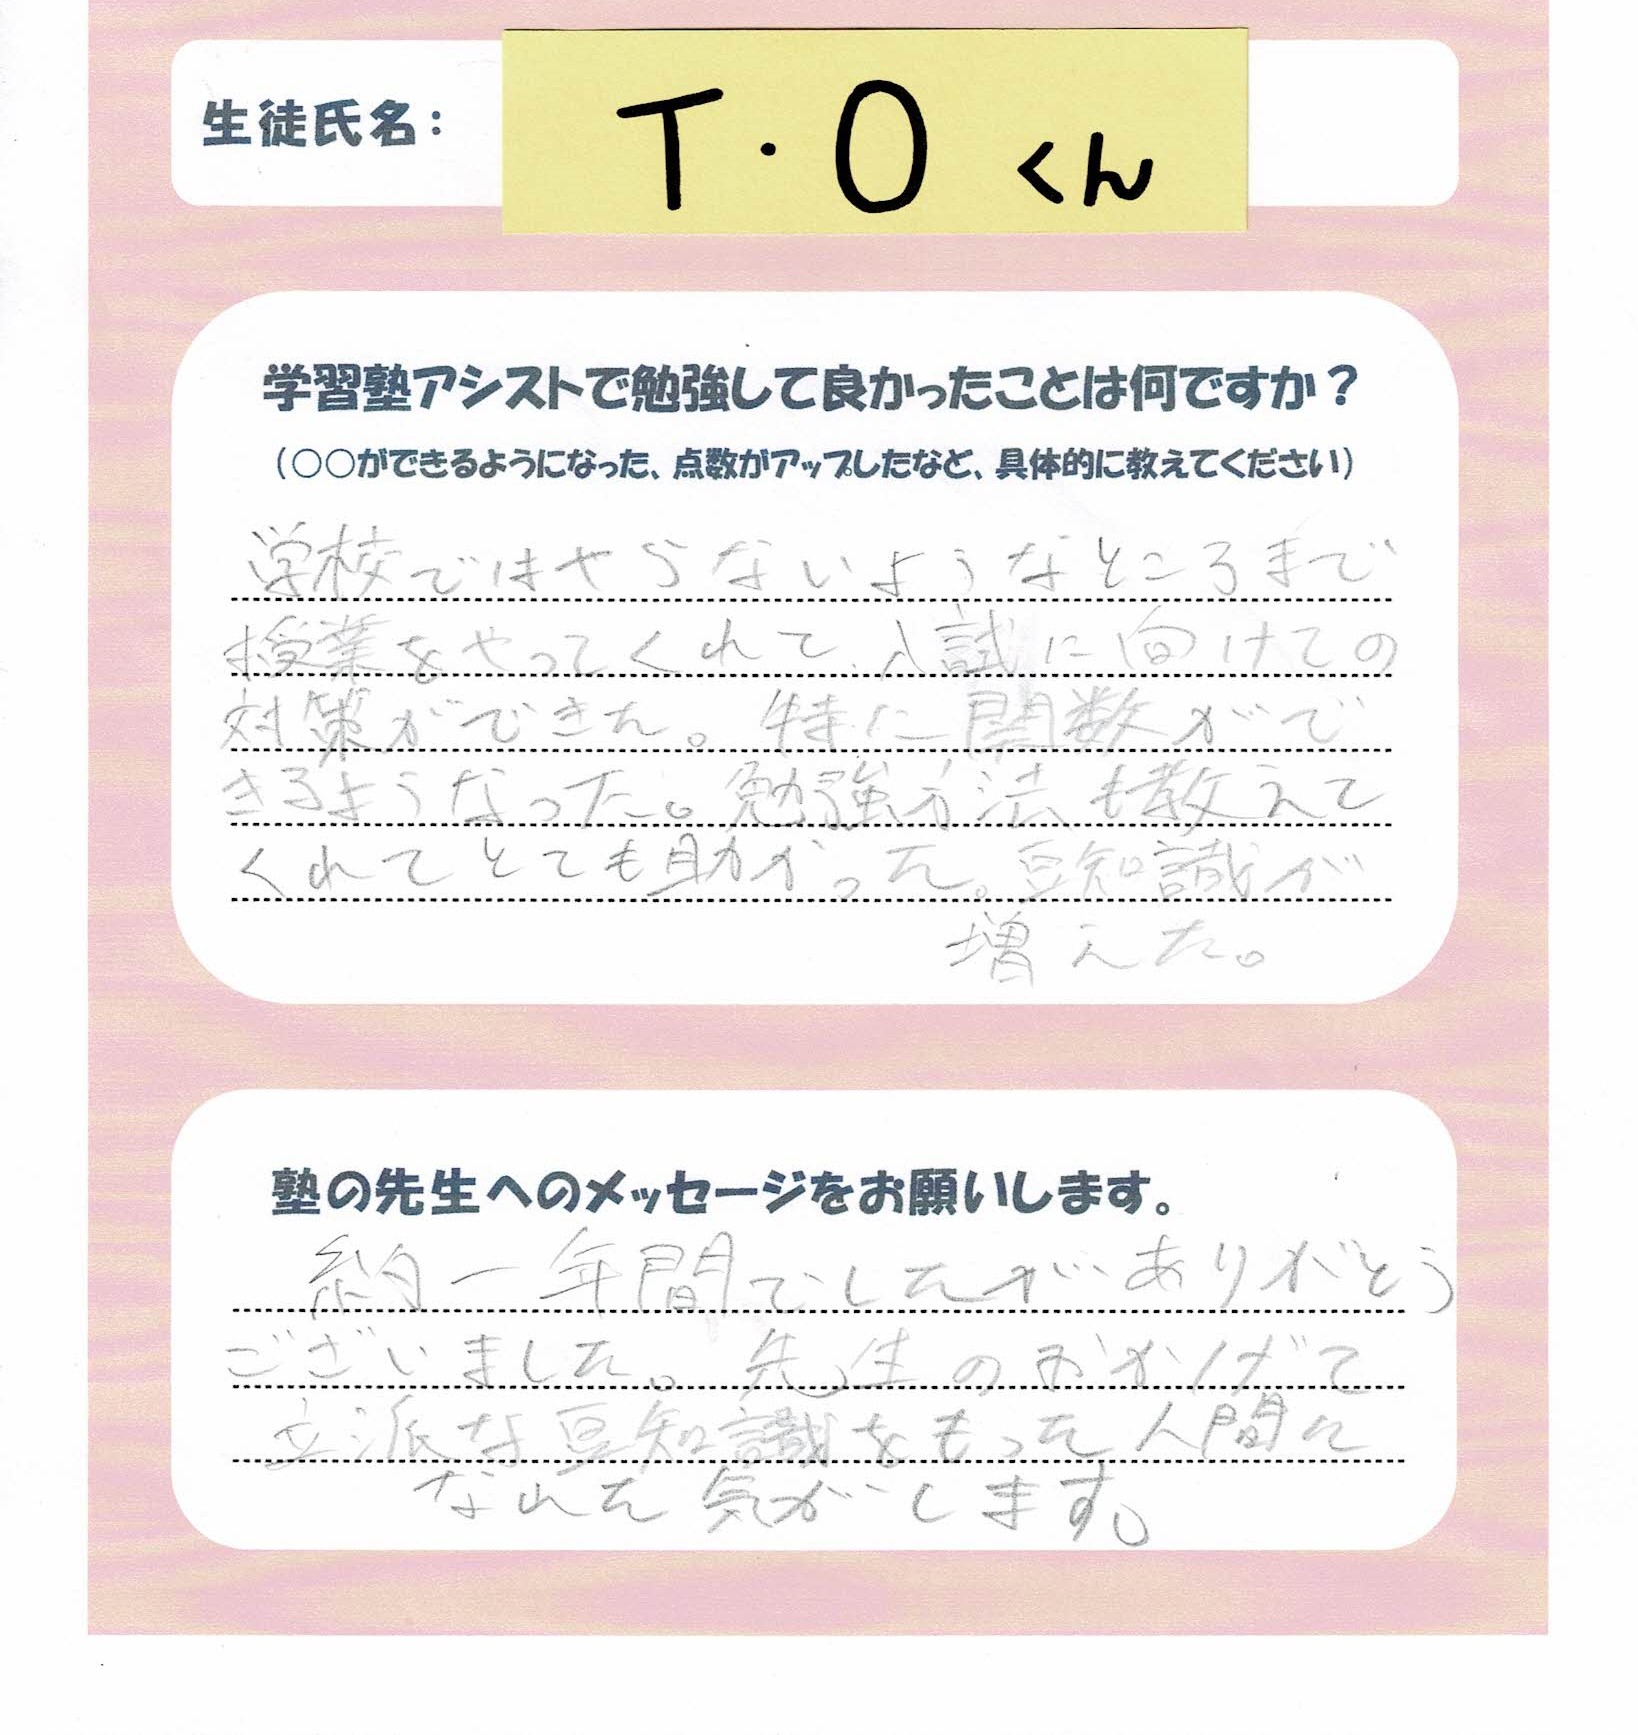 生徒氏名：
T・Oくん
学習塾アシストで勉強して良かったことは何ですか？
（○○ができるようになった、点数がアップしたなど、具体的に教えてください）
学校ではやらないようなところまで
授業をやってくれて、入試に向けての
対策ができた。特に関数がで
きるようなった。勉強方法も教えて
くれてとても助かった。豆知識が
増えた。
塾の先生へのメッセージをお願いします。
約一年間でしたが、ありがとう
ございました。先生のおかげで
立派な豆知識をもった人間に
なれた気がします。